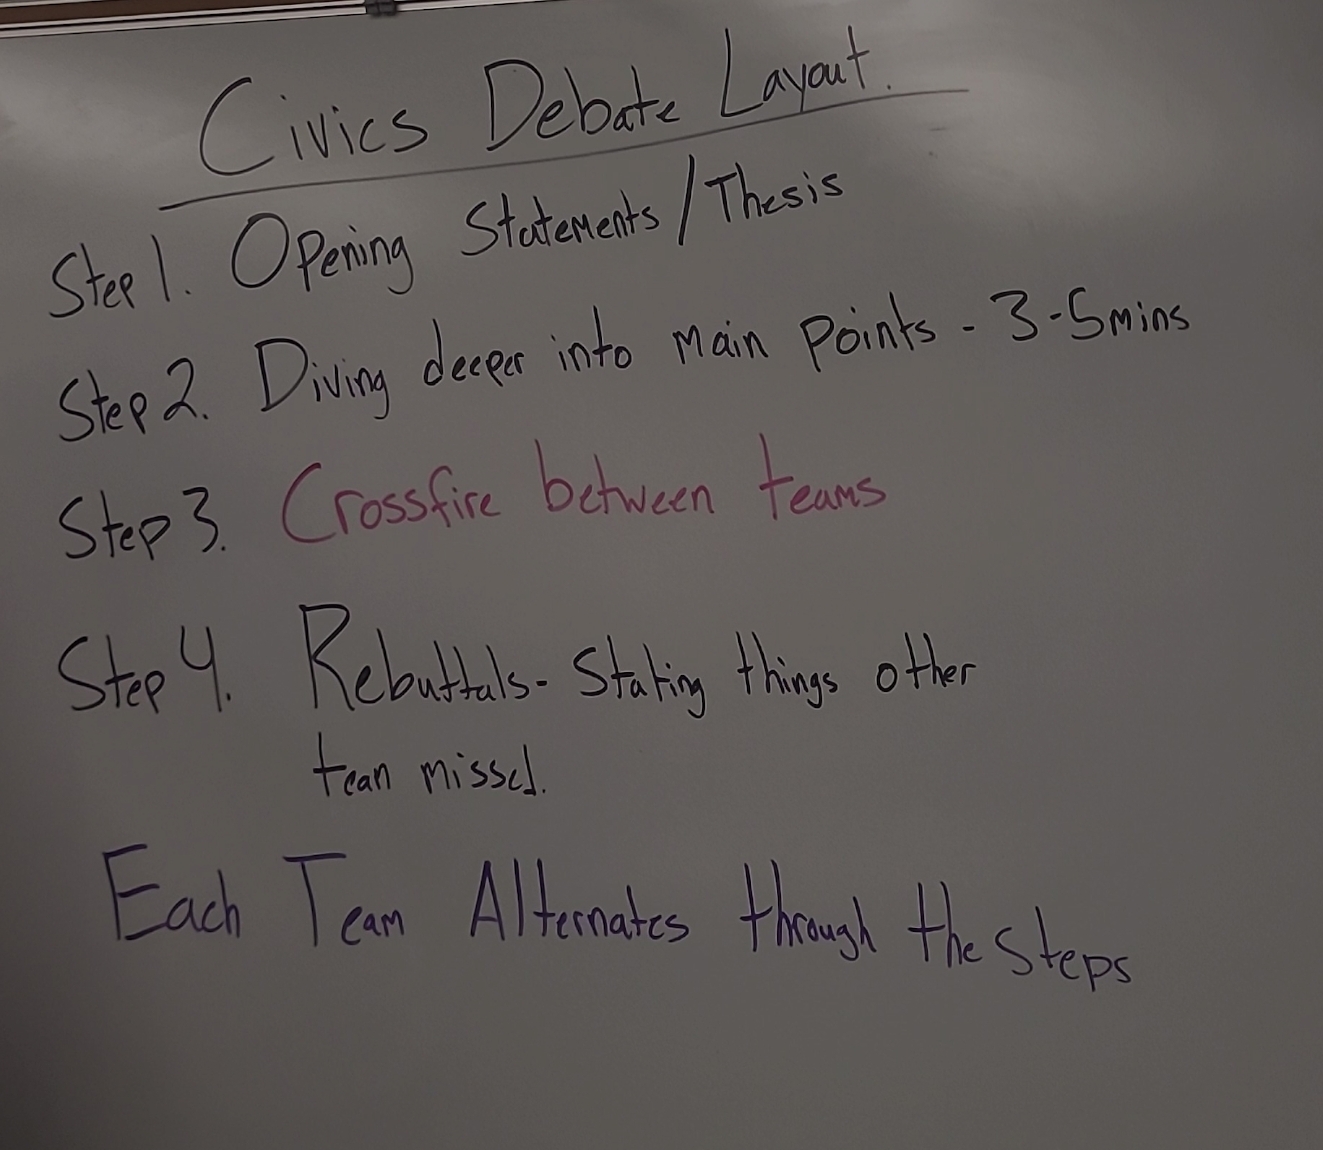 Civics Debate Layout.
Step 1. Opening Statements/Thesis
Step 2. Diving deeper into main points - 3-5mins
Step 3. Crossfire between teams
Step 4. Rebuttals- Stating things other
team missed.
Each Team Alternates through the steps